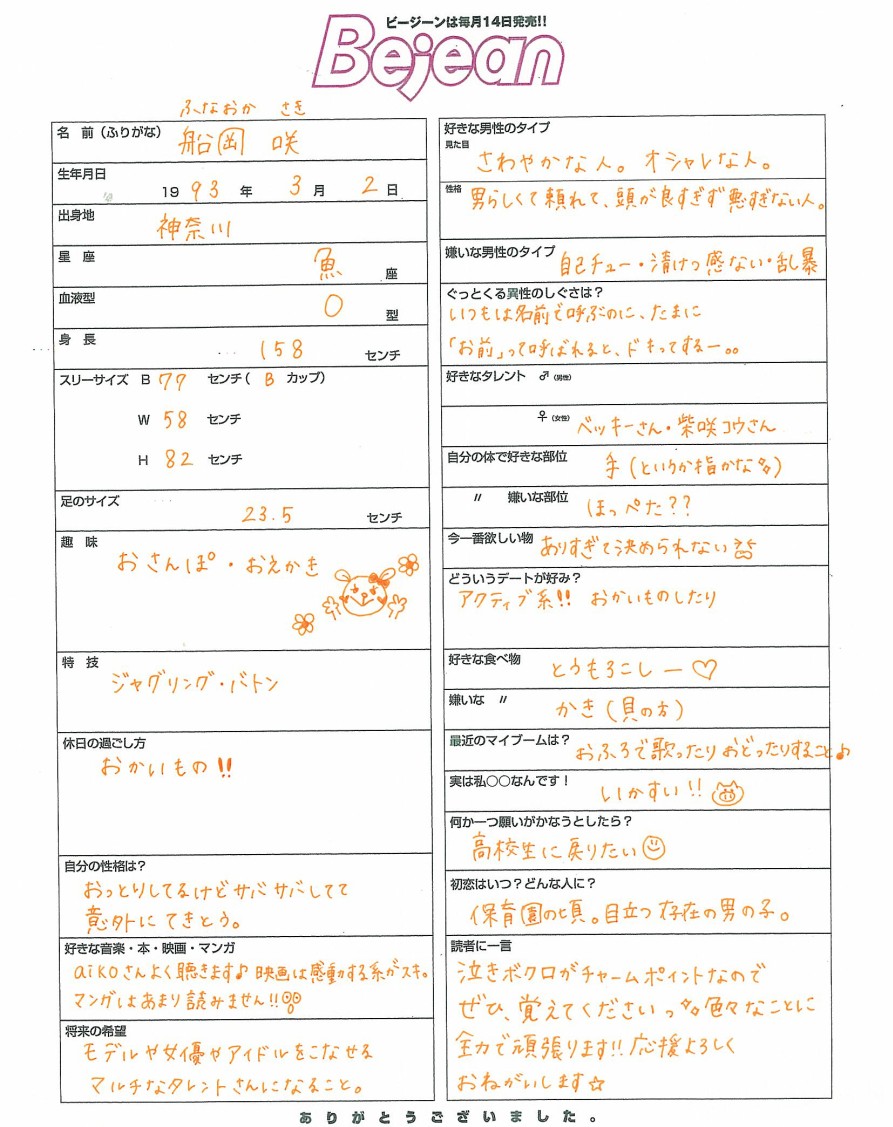 ビージーンは毎月14日発売!!
Bejean
ふなおか さき
名 前（ふりがな） 船岡 咲
生年月日
19 93 年 3 月 2 日
出身地
神奈川
星 座
魚 座
血液型
O 型
身 長
158 センチ
スリーサイズ B 77 センチ( B カップ)
W 58 センチ
H 82 センチ
足のサイズ
23.5 センチ
趣 味
おさんぽ・おえかき
特 技
ジャグリング・バトン
休日の過ごし方
おかいもの!!
自分の性格は？
おっとりしてるけどサバサバしてて
意外にてきとう。
好きな音楽・本・映画・マンガ
aikoさんよく聴きます♪ 映画は感動する系がスキ。
マンガはあまり読みません!!
将来の希望
モデルや女優やアイドルをこなせる
マルチなタレントさんになること。
好きな男性のタイプ
見た目
さわやかな人。オシャレな人。
性格 男らしくて頼れて、頭が良すぎず悪すぎない人。
嫌いな男性のタイプ 自己チュー・清けつ感ない・乱暴
ぐっとくる異性のしぐさは？
いつもは名前で呼ぶのに、たまに
「お前」って呼ばれると、ドキってするー。。
好きなタレント ♂（男性）
♀（女性） ベッキーさん・柴咲コウさん
自分の体で好きな部位 手(というか指かな)
〃 嫌いな部位 ほっぺた??
今一番欲しい物 ありすぎて決められない
どういうデートが好み？
アクティブ系!! おかいものしたり
好きな食べ物 とうもろこしー♡
嫌いな 〃 かき(貝の方)
最近のマイブームは？ おふろで歌ったりおどったりすること♪
実は私○○なんです！
いかすい!!
何か一つ願いがかなうとしたら？
高校生に戻りたい
初恋はいつ？どんな人に？
保育園の頃。目立つ存在の男の子。
読者に一言
泣きボクロがチャームポイントなので
ぜひ、覚えてくださいっ 色々なことに
全力で頑張ります!! 応援よろしく
おねがいします☆
ありがとうございました。